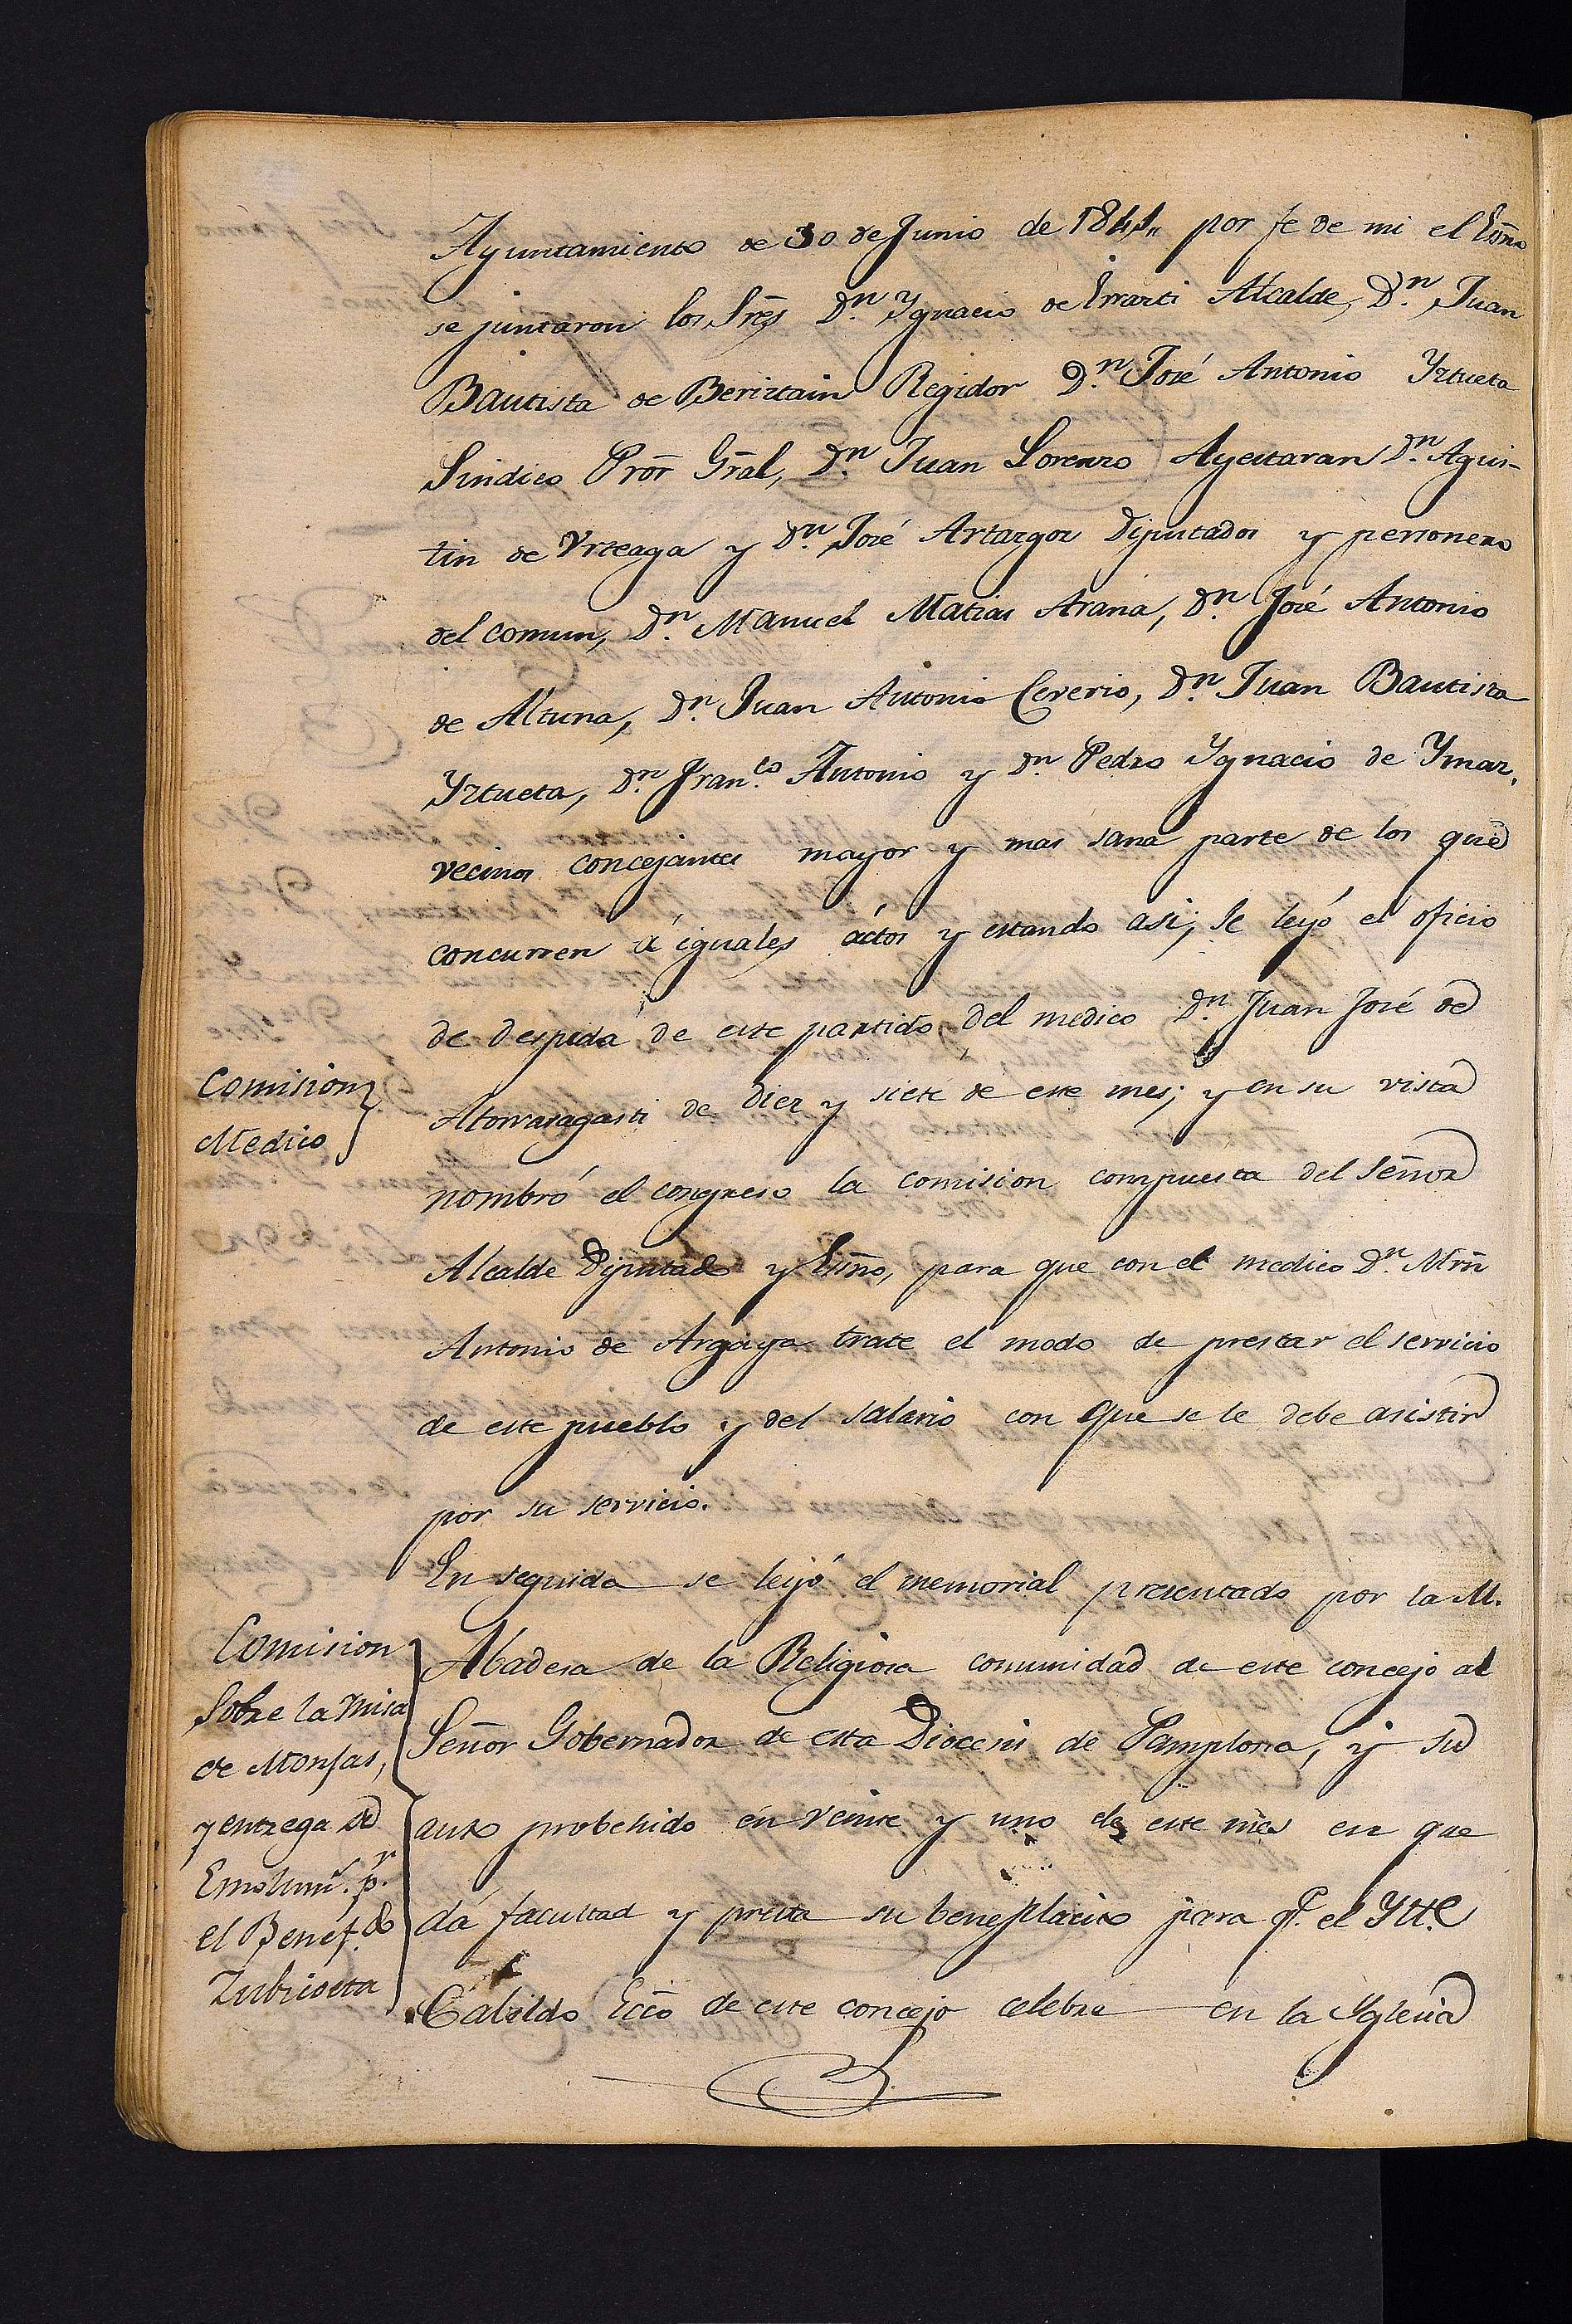 Ayuntamiento de 30 de Junio de 1841,, por fe de mi el Esño
se juntaron los Sres Dn. Ygnacio de Errazti Alcalde, Dn. Juan
Bautista de Beriztain Regidor Dn. José Antonio Yztueta
Sindico Pror Gral, Dn. Juan Lorenzo Ayestaran Dn. Agus-
tin de Vrteaga y Dn. José Artazgoz Diputados y personero
del comun, Dn. Manuel Matias Arana, Dn. José Antonio
de Altuna, Dn. Juan Antonio Cererio, Dn. Juan Bautista
Yztueta, Dn. Fran.co Antonio y Dn. Pedro Ygnacio de Ymaz,
vecinos concejantes mayor y mas sana parte de los que
concurren á iguales áctos y estando asi; se leyó el oficio
de despida de este partido del medico Dn. Juan José de
Comision
Medico
Atorrasagasti de diez y siete de este mes; y en su vista
nombró el congreso la comision compuesta del Señor
Alcalde Diputado y Esño, para que con el medico Dn. Mrñ
Antonio de Argaya trate el modo de prestar el servicio
de este pueblo y del salario con que se le debe asistir
por su servicio.
En seguida se leyó el memorial presentado por la M.
Comision
Sobre la misa
de Monjas,
y entrega de
Emolumt. pr.
el Benef.do
Zubicoeta
Abadesa de la Religiosa comunidad de este concejo al
Señor Gobernador de esta Diocesis de Pamplona, y su
auto probehido en veinte y uno de este mes en que
dá facultad y presta su beneplacito para qe. el Ytt.e
Cabildo Ecco de este concejo celebre en la Yglesia